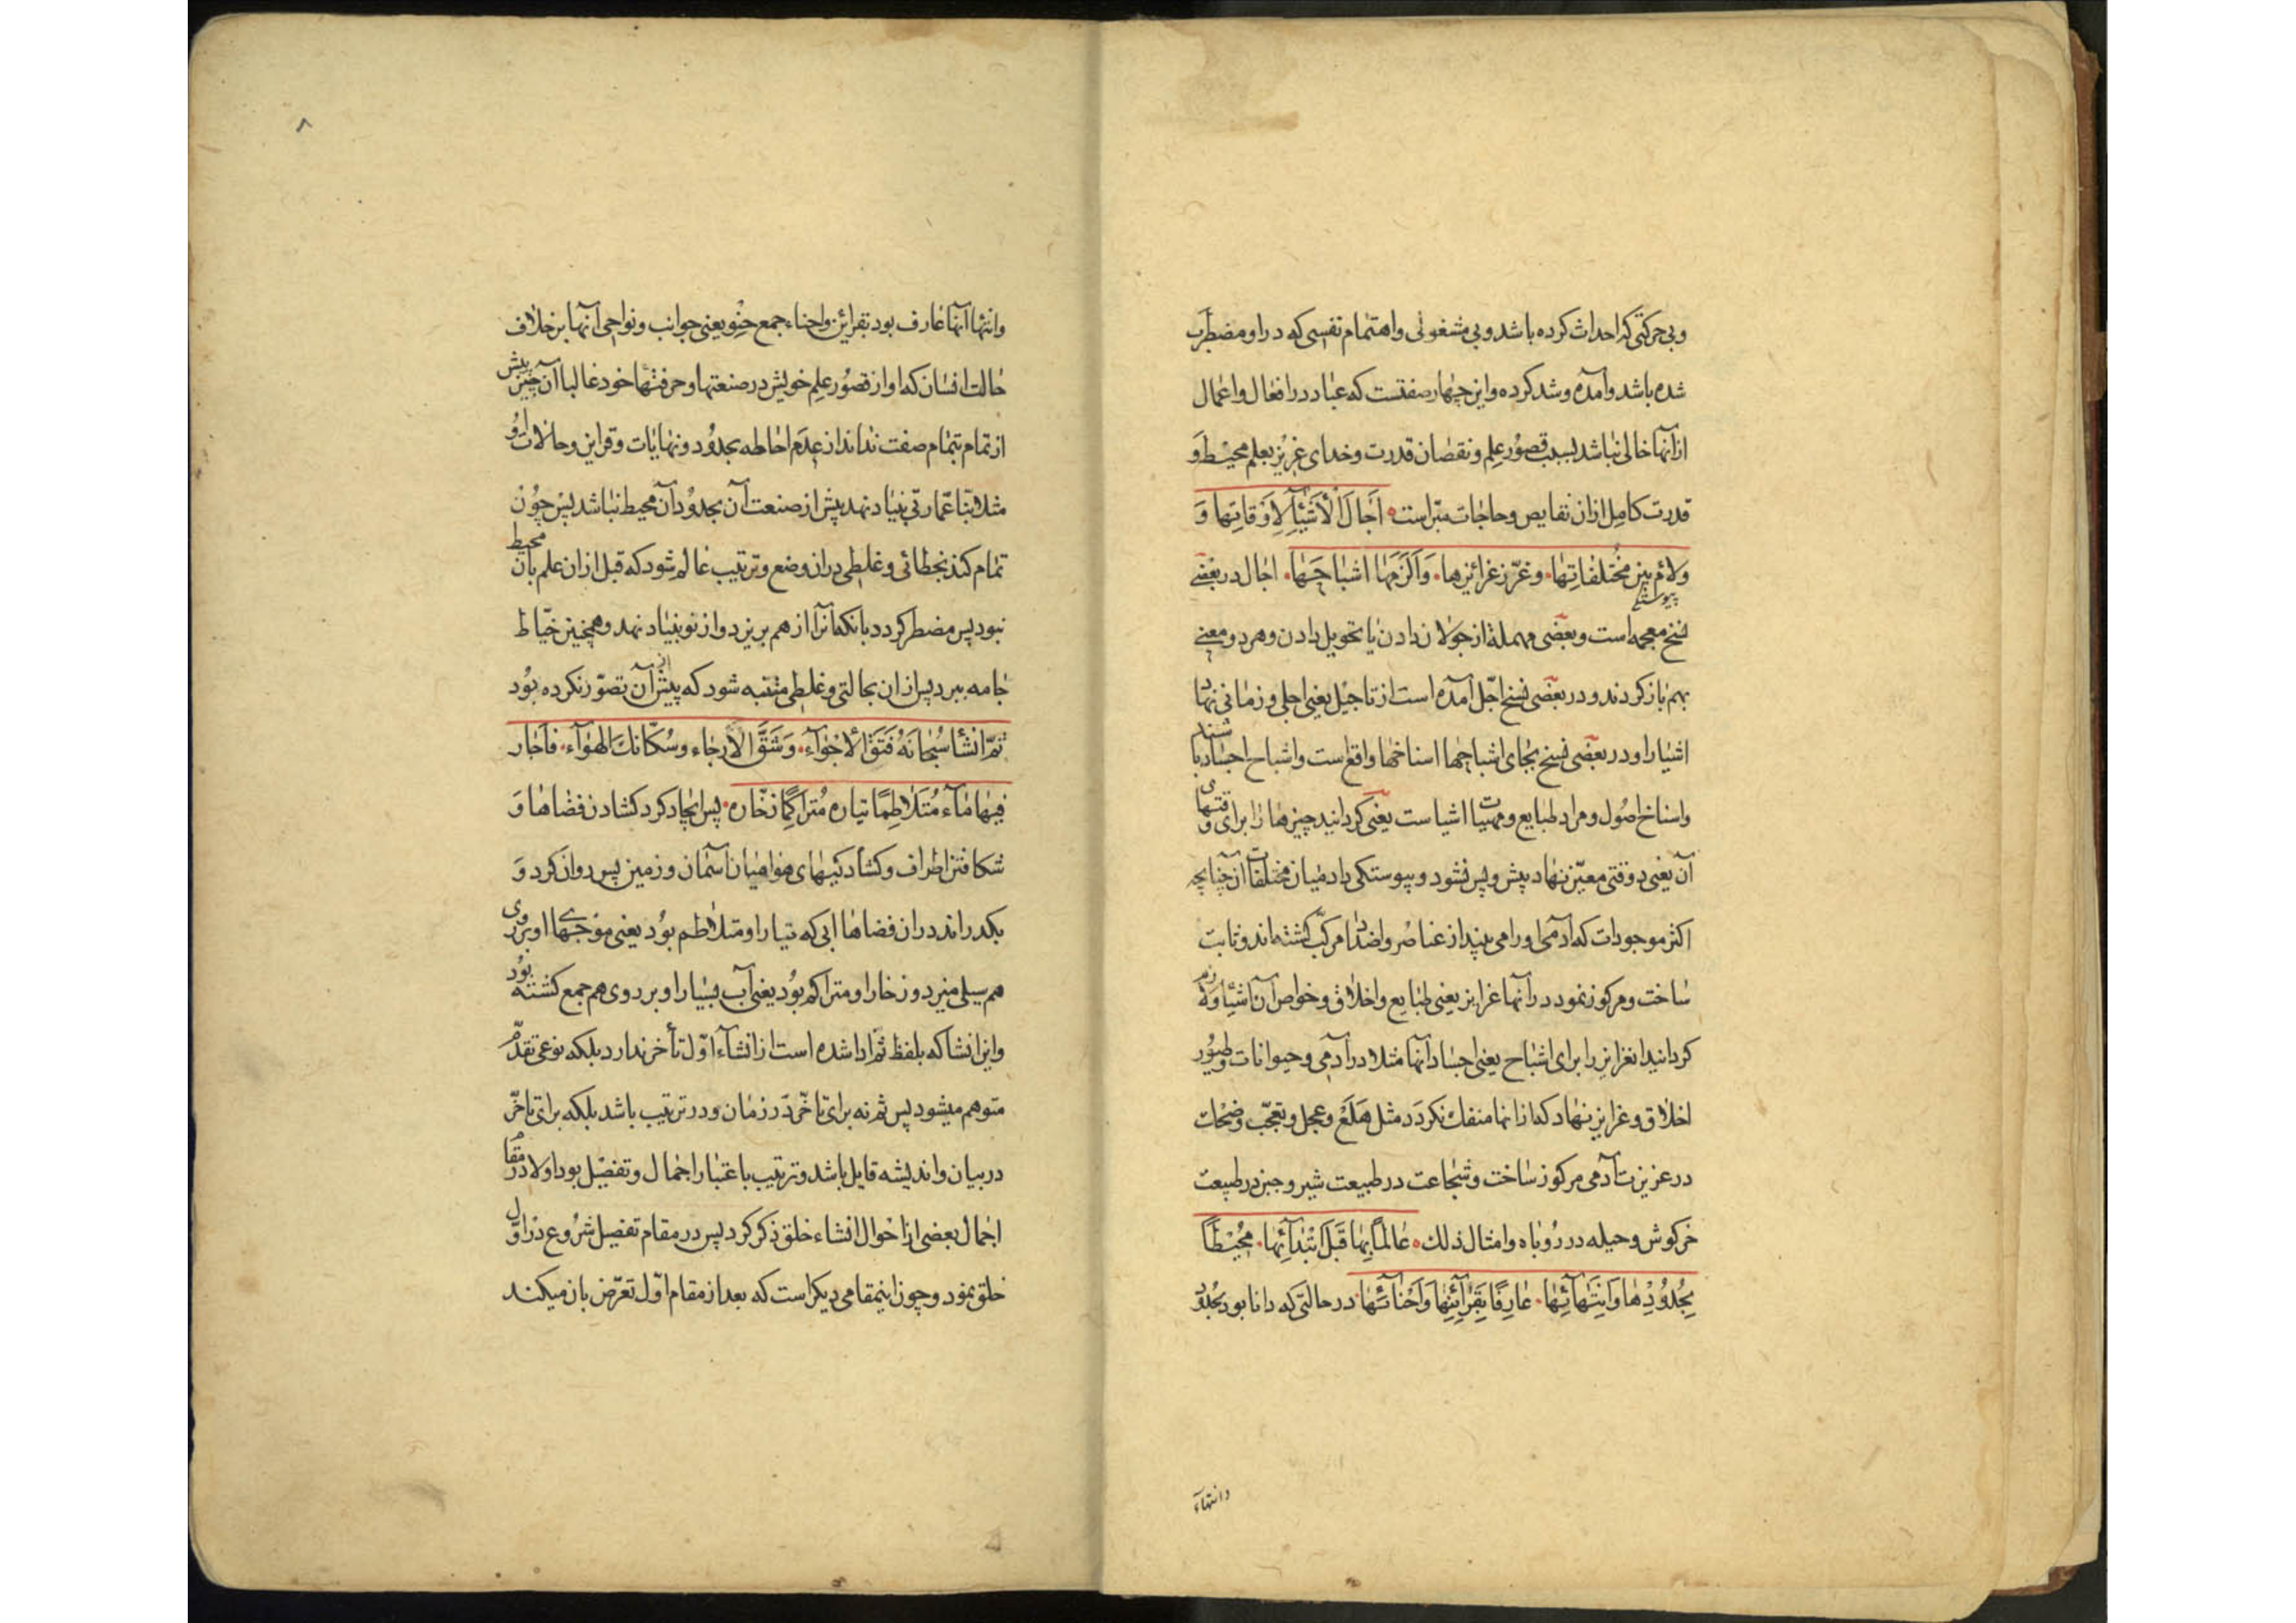 وبی حرکتی که احداث کرده باشد وبی مشغولی واهتمام نفسی که در او مضطرب
شده باشد وآمده وشد کرده واین چهار صفتست که عباد در افعال واعمال
از آنها خالی نباشد بسبب قصور علم ونقصان قدرت وخدای عزیز بعلم محیط و
قدرت کامل از ان نقایص وحاجات مبراست اَجَالَ الْأَشْیَآءَ لِأَوْقَاتِهَا وَ
ولأم بین مُخْتَلِفَاتِهَا وغرّز غرائزها وَاَلْزَمَهَا اشباحَهَا اجال در بعضی
نسخ معجمه است وبعضی مهمله از جولان دادن یا تحویل دادن وهر دو معنی
بهم باز کردند ودر بعضی نسخ اجّل آمده است از تاجیل یعنی اجلی وزمانی نهاد
اشیا را ودر بعضی نسخ بجای اشباحها اسناخها واقع است واشباح اجساد با
واسناخ اصول ومراد طبایع ومهیات اشیا ست یعنی کردانید چیزها را برای وقتهای
آن یعنی وقتی معین نهاد پیش وپس نشود وپیوستکی داد میان مختلفات از چنانچه
اکثر موجودات که آدمی او را می بیند از عناصر واضداد مرکب کشته اند وثابت
ساخت ومرکوز نمود در آنها غرایز یعنی طبایع واخلاق وخواص آن اشیا ولازم
کردانید انغرایز را برای اشباح یعنی اجساد آنها مثلا در آدمی وحیوانات وطیور
اخلاق وغرایز نهاد که از انها منفک نکردد مثل هلع وعجل وتعجب وضحک
در غریزت آدمی مرکوز ساخت وشجاعت در طبیعت شیر وجبن در طبیعت
خرکوش وحیله در روباه وامثال ذلک عَالِمًا بِهَا قَبْلَ ابْتِدَآئِهَا مُحِیْطًا
بِحُدُوْدِهَا وَانْتِهَآئِهَا عَارِفًا بِقَرَآئِنِهَا وَاَحْنَآئِهَا در حالتی که دانا بود بحدود
وانتهاء
۸
وانتهاآنها عارف بود بقرائن واحناء جمع حنو یعنی جوانب ونواحی آنها بر خلاف
حالت انسان که او از قصور علم خویش در صنعتها وحرفتها خود غالبا آن چنین پیش
از تمام بتمام صفت نداند از عدم احاطه بحدود ونهایات وقراین وحالات او
مثلا بنّا عمارتی بنیاد نهد پیش از صنعت آن بحدود آن محیط نباشد پس چون
تمام کند بخطائی وغلطی در ان وضع وترتیب عالم شود که قبل از ان علم بان محیط
نبود پس مضطر کردد بانکه آنرا از هم بریزد واز نو بنیاد نهد وهمچنین خیّاط
جامه ببرد پس از ان بحالتی وغلطی متنبه شود که پیش از آن تصوّر نکرده بود
ثمّ انشأ سُبْحَانَهُ فَتَقَ الْاَجْوَآءِ وَشَقَّ الْاَرجاء وسُکَائكَ الهوآء فاَجَار
فِیهَا مَآءً مُتَلَاطِمًا تیاره مُتراکِمًا زخّاره پس ایجاد کرد کشادن فضاها و
شکافتن اطراف وکشاد کیهای هوا میان آسمان وزمین پس روان کرد و
بکدراند در ان فضاها ابی که تیار او متلاطم بود یعنی موجهای او بر روی
هم سیلی میزد وزخار او متراکم بود یعنی آب بسیار او بر روی هم جمع کشته بود
واین انشا که بلفظ ثم ادا شده است از انشاء اوّل تأخر ندارد بلکه نوعی تقدّم
متوهم میشود پس ثم نه برای تاخّر در زمان ودر ترتیب باشد بلکه برای تاخّر
در بیان واندیشه قایل باشد وترتیب باعتبار اجمال وتفصیل بود اولا در مقام
اجمال بعضی از احوال انشاء خلق ذکر کرد پس در مقام تفصیل شروع در اوّل
خلق نمود وچون اینمقامی دیکر است که بعد از مقام اوّل تعرّض بان میکند